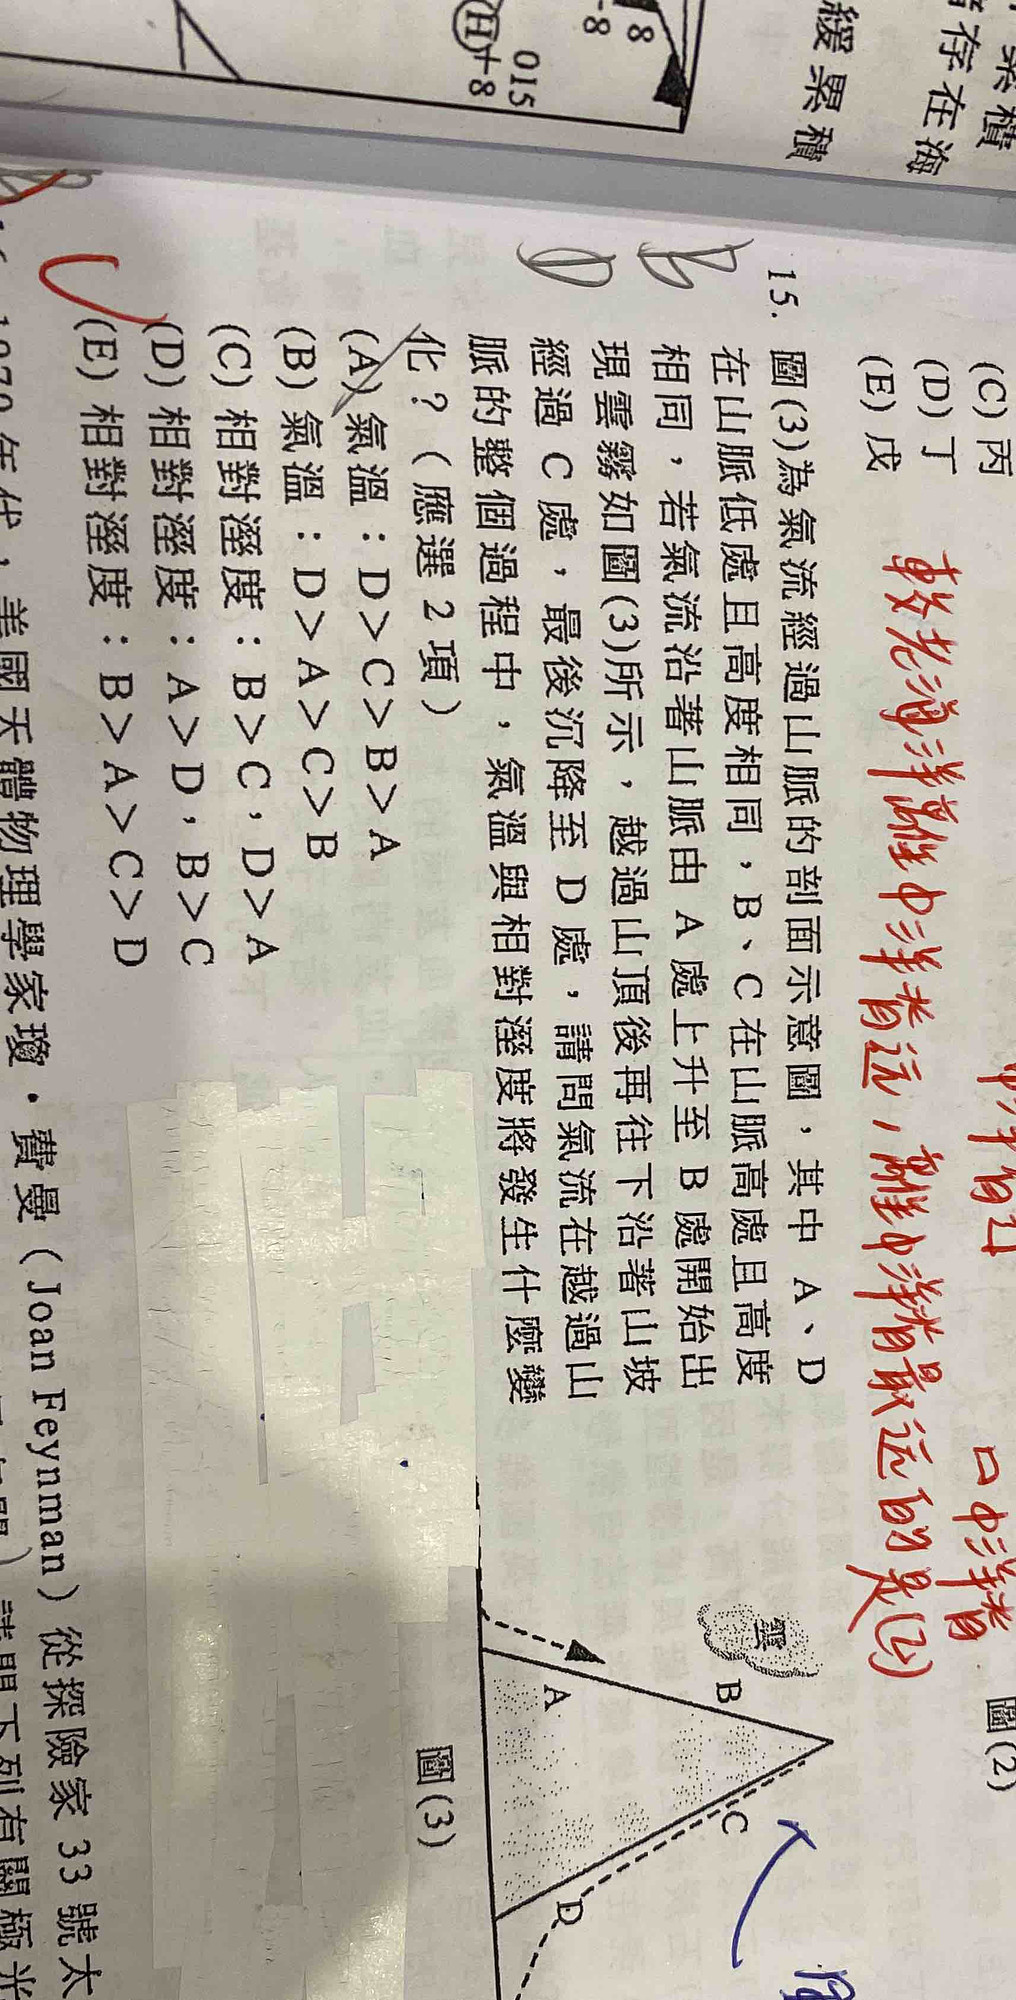 累積
存在海
緩累積
8
-8
015
(H)+8
(C) 丙
(D) 丁
(E) 戊
圖(2)
較老海洋離中洋脊遠,離中洋脊最遠的是(乙)
15. 圖(3)為氣流經過山脈的剖面示意圖,其中 A、D
在山脈低處且高度相同,B、C 在山脈高處且高度
相同,若氣流沿著山脈由 A 處上升至 B 處開始出
現雲霧如圖(3)所示,越過山頂後再往下沿著山坡
經過 C 處,最後沉降至 D 處,請問氣流在越過山
脈的整個過程中,氣溫與相對溼度將發生什麼變
化?(應選 2 項)
(A) 氣溫:D>C>B>A
(B) 氣溫:D>A>C>B
(C) 相對溼度:B>C,D>A
(D) 相對溼度:A>D,B>C
(E) 相對溼度:B>A>C>D
雲
B
C
A
D
圖(3)
1970 年代,美國天體物理學家瓊.費曼(Joan Feynman)從探險家 33 號太